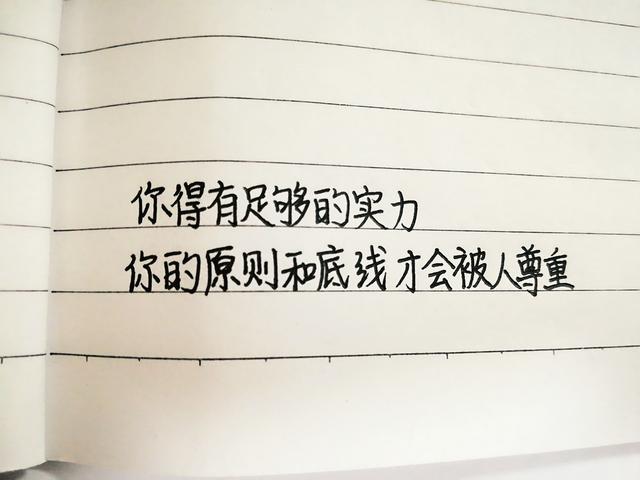 你得有足够的实力
你的原则和底线才会被人尊重